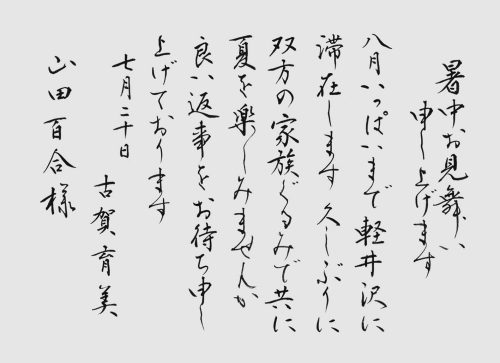 暑中お見舞い
申し上げます
八月いっぱいまで軽井沢に
滞在します 久しぶりに
双方の家族ぐるみで共に
夏を楽しみませんか
良い返事をお待ち申し
上げております
七月二十日
古賀育美
山田百合様